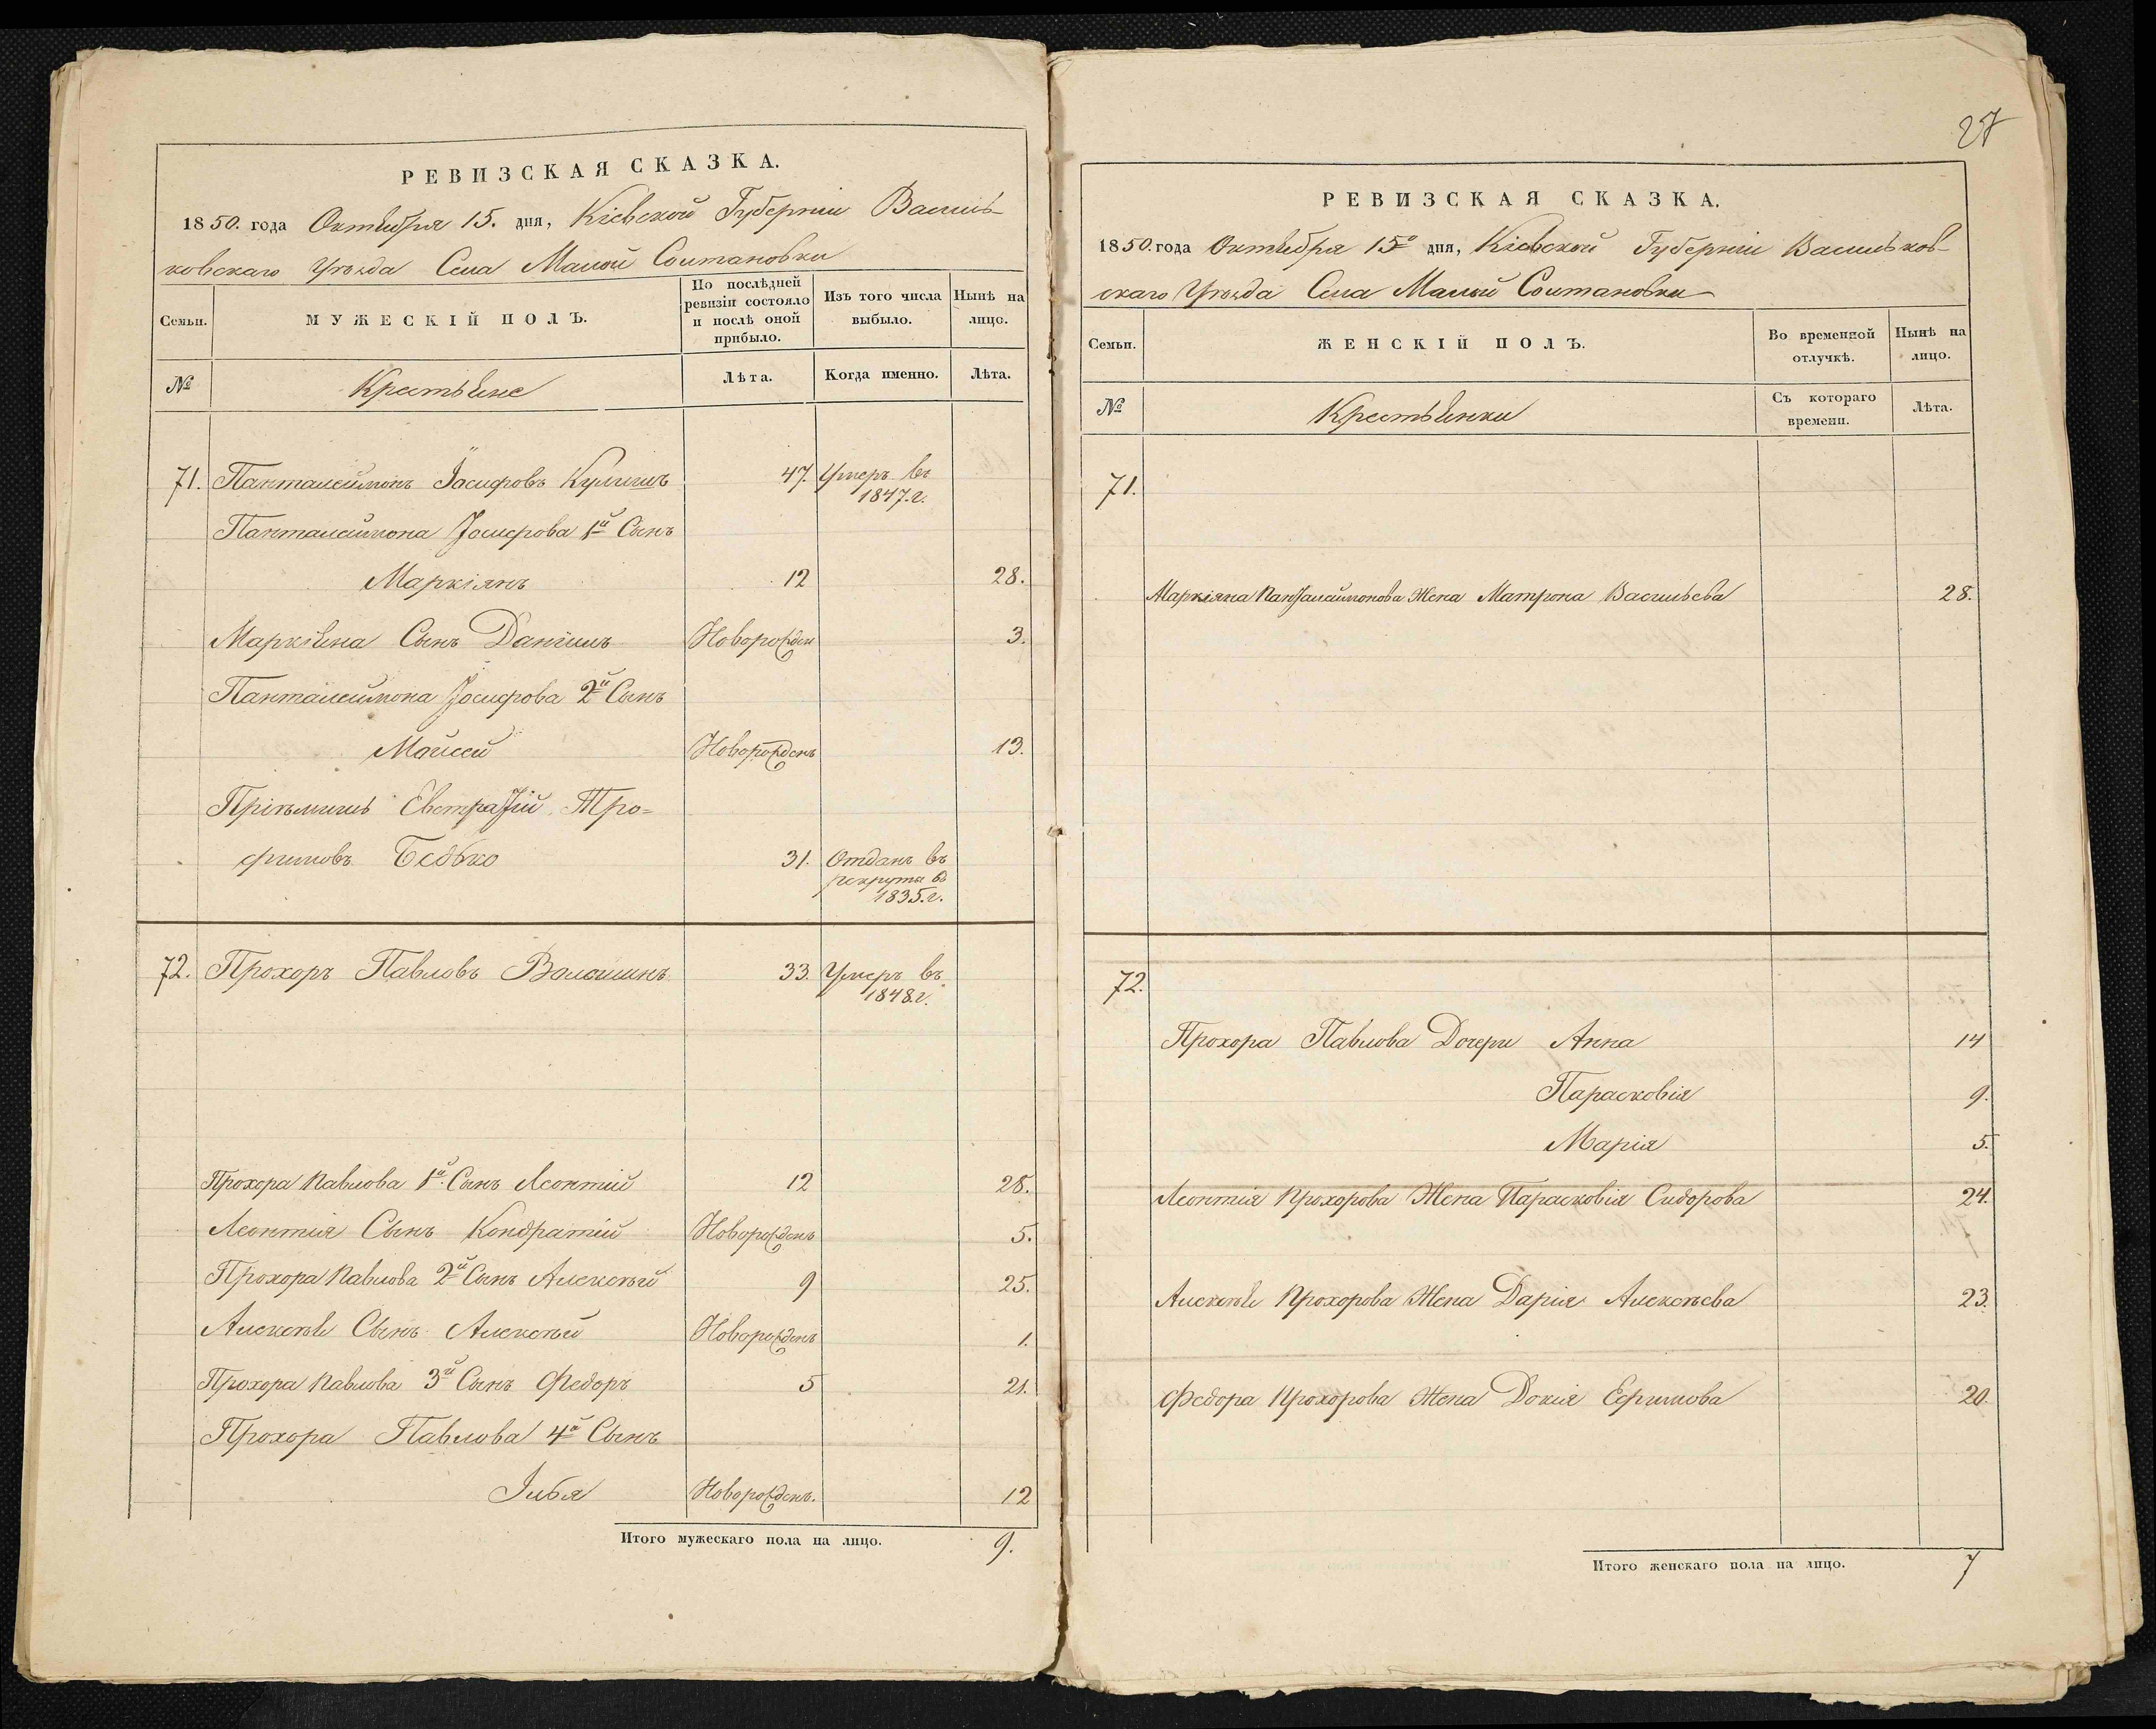 РЕВИЗСКАЯ СКАЗКА.
1850. года Октября 15. дня, Кіевской Губерніи Василь-
ковскаго Уѣзда Села Малой Солтановки
Семьи.
МУЖЕСКІЙ ПОЛЪ.
По послѣдней ревизіи состояло и послѣ оной прибыло.
Изъ того числа выбыло.
Нынѣ на лицо.
№
Крестьяне
Лѣта.
Когда именно.
Лѣта.
71. Панталеймонъ Іосифовъ 47. Умеръ въ
1847.г.
Панталеймона Іосифова 1й Сынъ
Маркіянъ 12 28.
Маркіяна Сынъ Даніилъ Новорожден 3.
Панталеймона Іосифова 2й Сынъ
Мойсей Новорожденъ 13.
Пріѣмышъ Евстратій Тро=
фимовъ Бедько 31. Отданъ въ
рекруты въ
1835.г.
72. Прохоръ Павловъ Волошинъ 33. Умеръ въ
1848.г.
Прохора Павлова 1й Сынъ Леонтій 12 28.
Леонтія Сынъ Кондратій Новорожденъ 5.
Прохора Павлова 2й Сынъ Алексѣй 9 25.
Алексѣя Сынъ Алексѣй Новорожденъ 1.
Прохора Павлова 3й Сынъ Федоръ 5 21.
Прохора Павлова 4й Сынъ
Илья Новорожденъ. 12
Итого мужескаго пола на лицо. 9.
27
РЕВИЗСКАЯ СКАЗКА.
1850. года Октября 15го дня, Кіевской Губерніи Васильков-
скаго Уѣзда Села Малой Солтановки
Семьи.
ЖЕНСКІЙ ПОЛЪ.
Во временной отлучкѣ.
Нынѣ на лицо.
№
Крестьянки
Съ котораго времени.
Лѣта.
71.
Маркіяна Панталеймонова Жена Матрона Васильева 28.
72.
Прохора Павлова Дочери Анна 14
Парасковія 9.
Марія 5.
Леонтія Прохорова Жена Парасковія Сидорова 24.
Алексѣя Прохорова Жена Дарія Алексѣева 23.
Федора Прохорова Жена Докія Ефимова 20.
Итого женскаго пола на лицо. 7